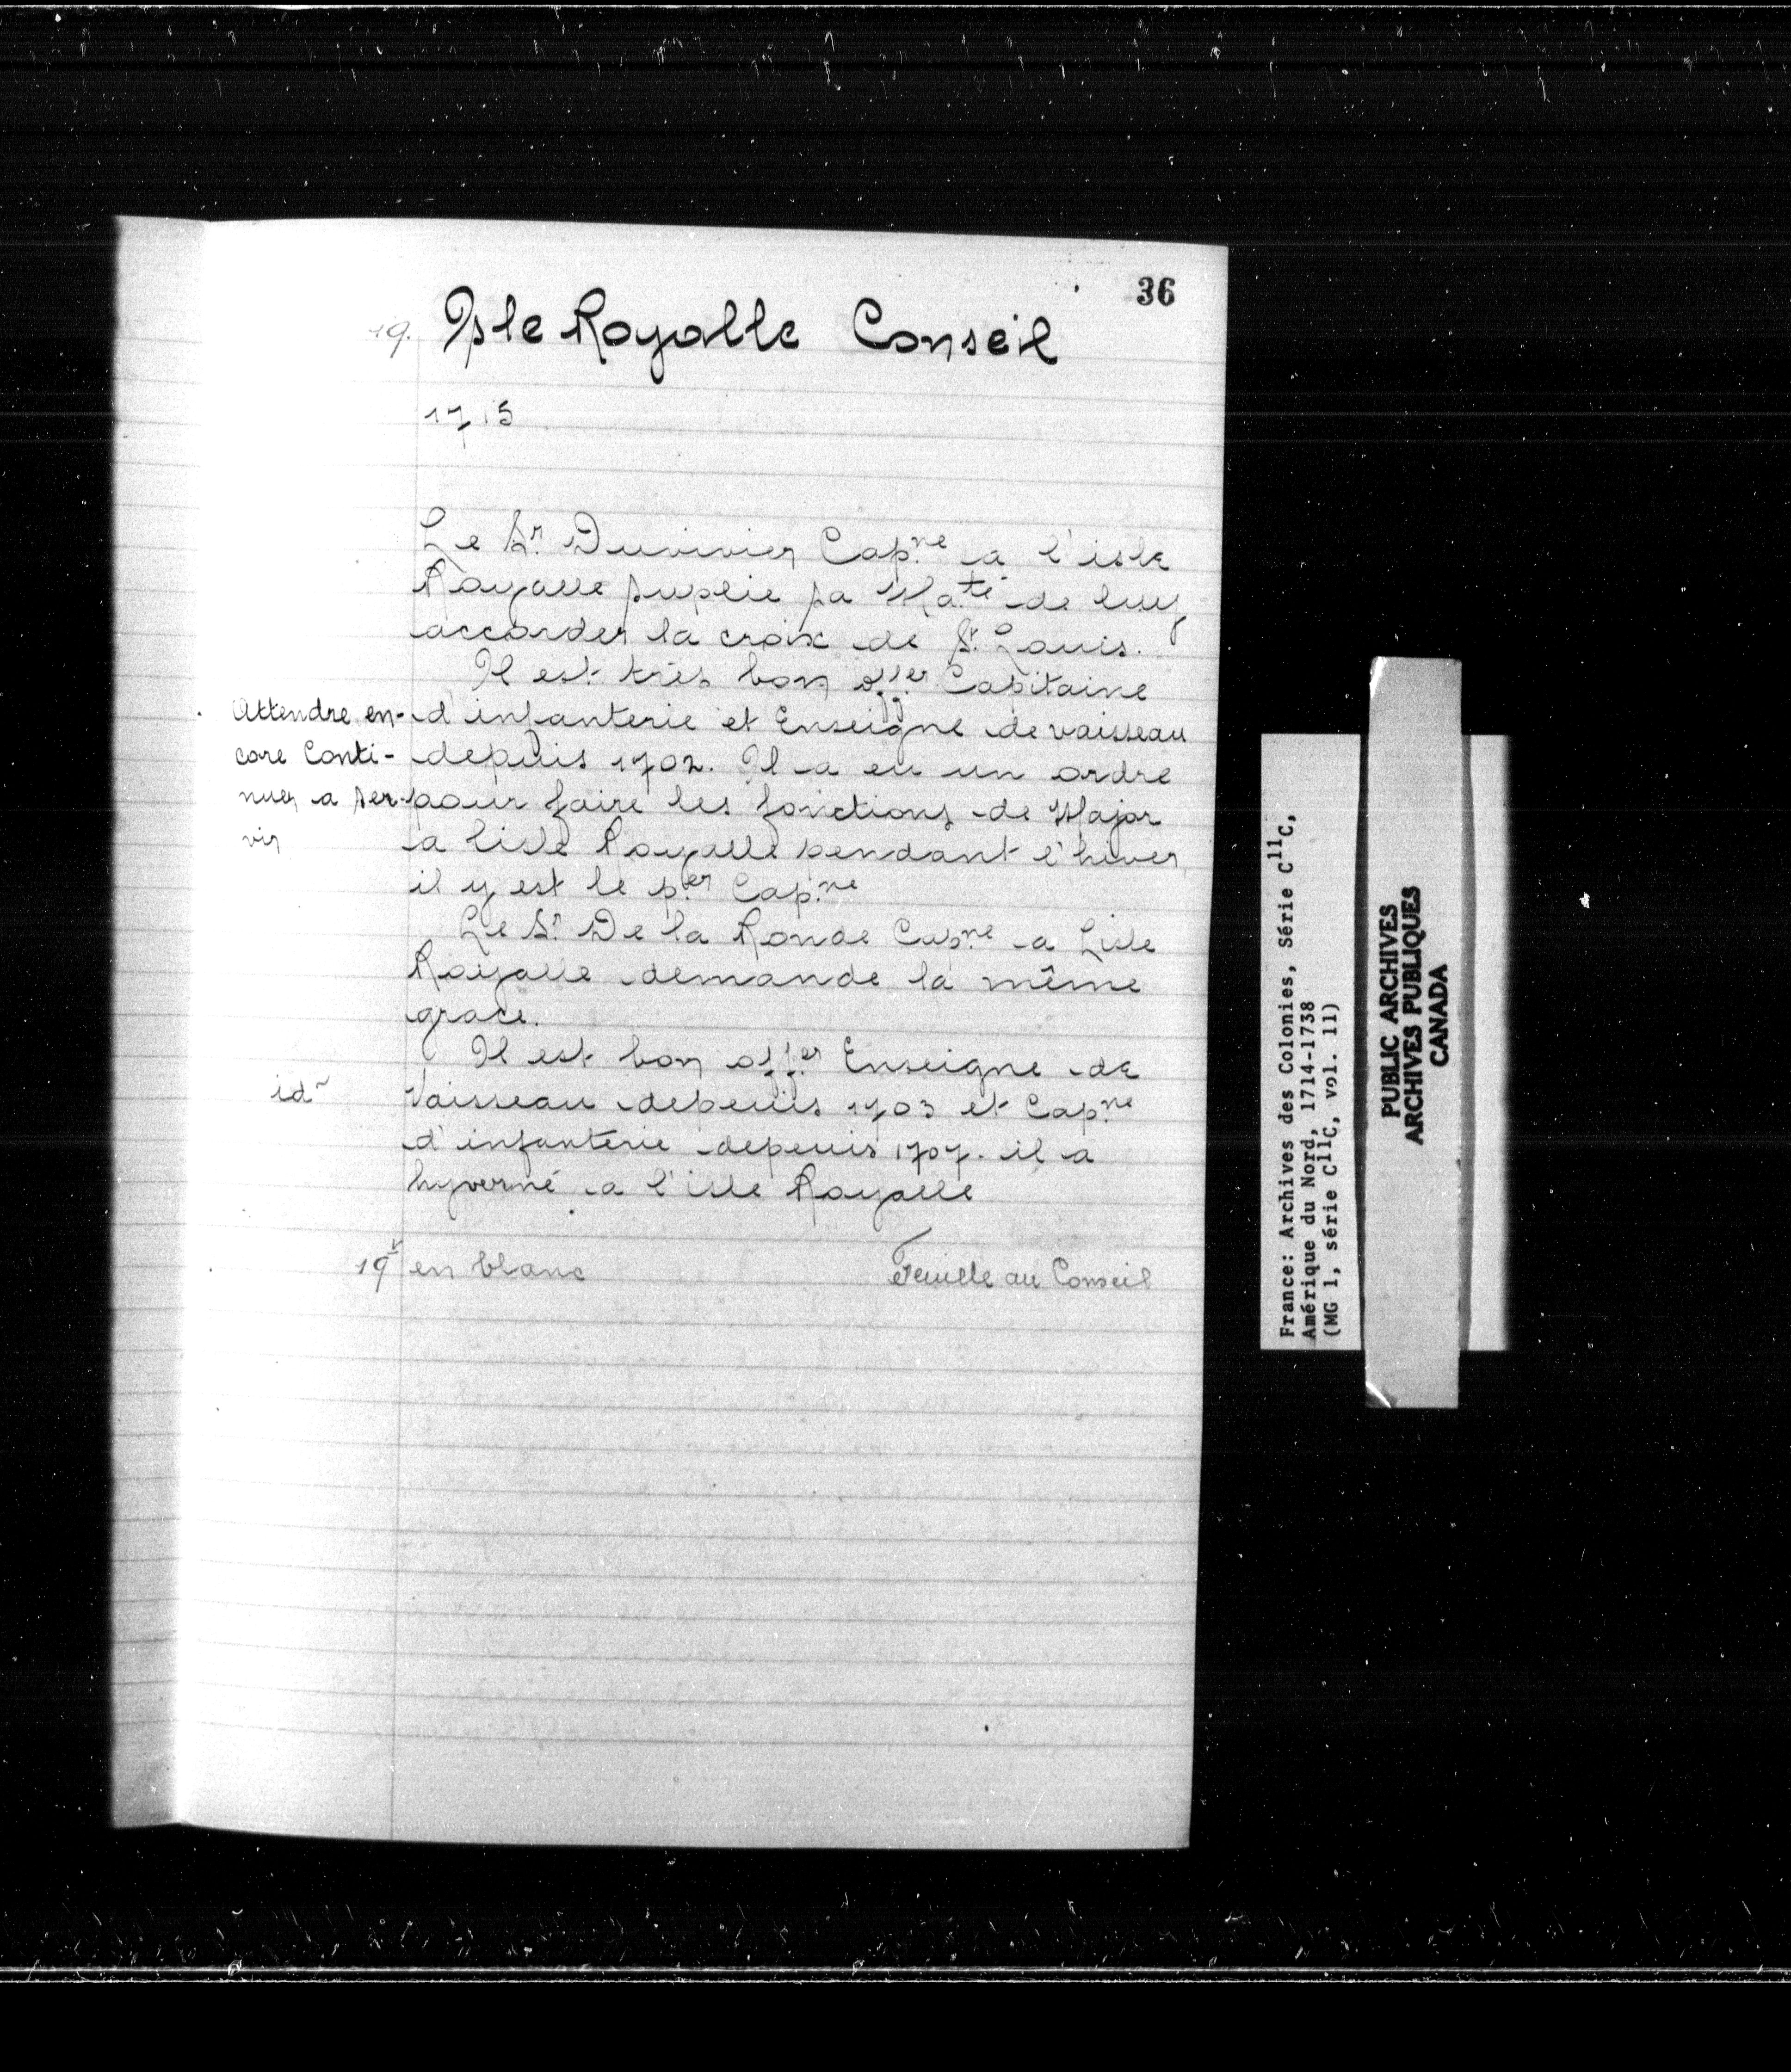 36
19. Isle Royalle Conseil
1715
Le Sr. Duvivier Capne a l'isle
Royalle suplie sa Ma.té de luy
accorder la croix de St. Louis.
Il est très bon offer Capitaine
d'infanterie et Enseigne de vaisseau
depuis 1702. Il a eu un ordre
pour faire les fonctions de Major
a lisle Royalle pendant l'hiver,
il y est le per Capne
Attendre en-
core Conti-
nuer a ser-
vir
Le Sr. De la Ronde Capne a Lisle
Royalle demande la même
grace.
Il est bon offer Enseigne de
Vaisseau depuis 1703 et Capne
d'infanterie depuis 1707. il a
hyverné a l'isle Royalle
id
19v en blanc
Feuille au Conseil
France: Archives des Colonies, Série C11C,
Amérique du Nord, 1714-1738
(MG 1, série C11C, vol. 11)
PUBLIC ARCHIVES
ARCHIVES PUBLIQUES
CANADA